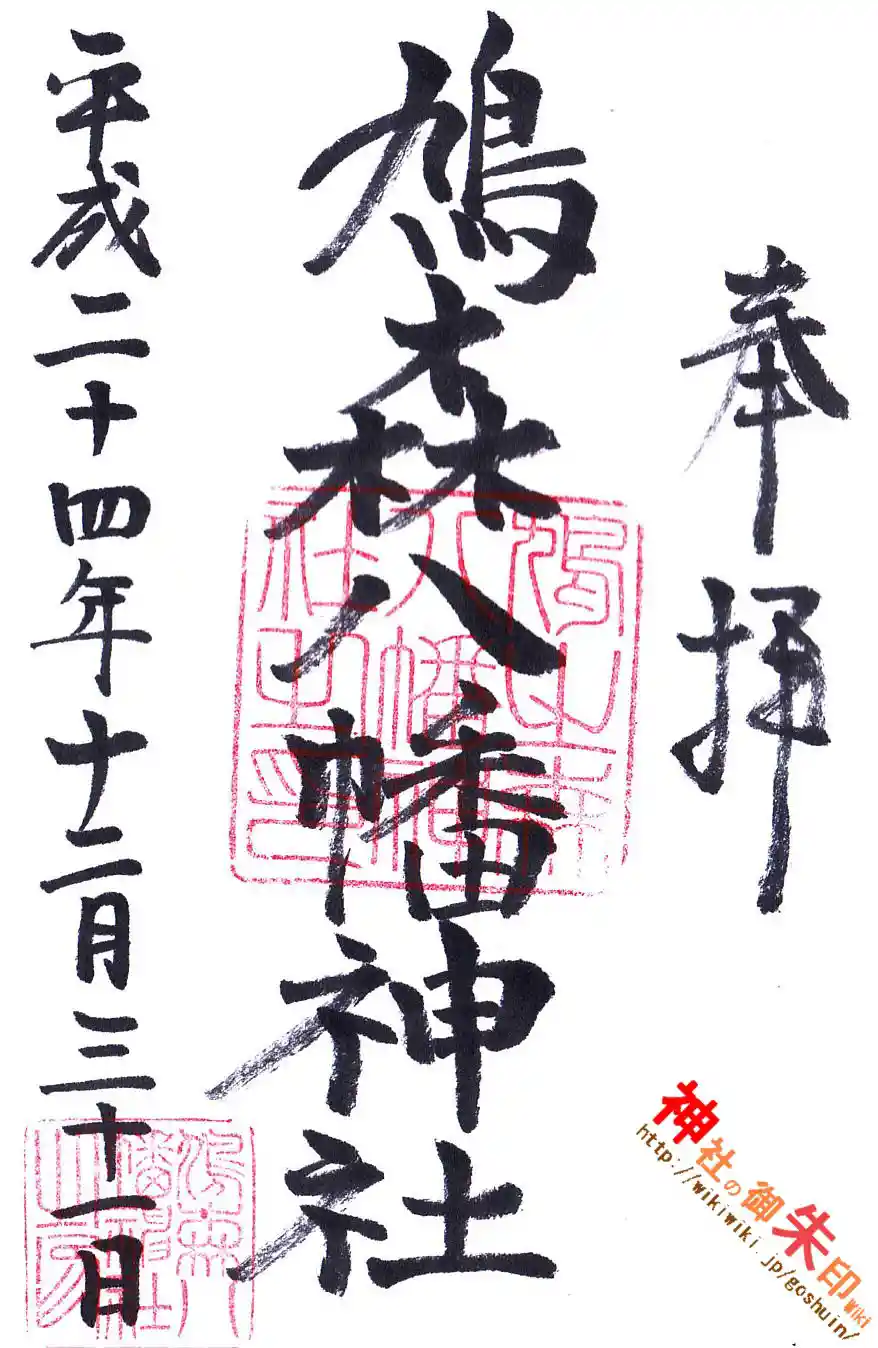 奉拝
鳩森八幡神社
平成二十四年十二月三十一日
神社の御朱印Wiki
http://wikiwiki.jp/goshuin/